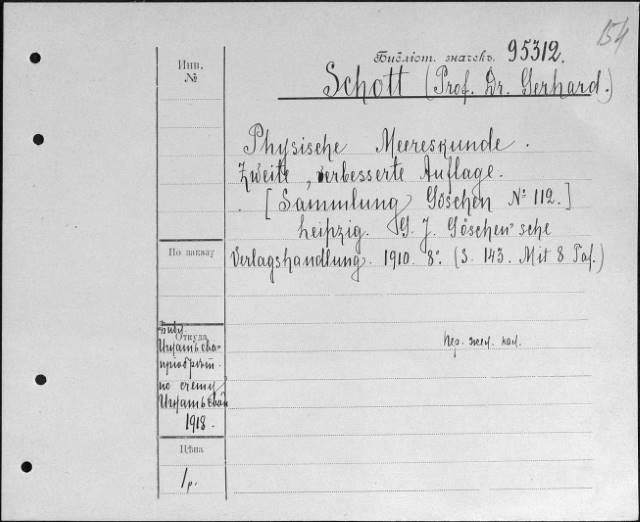 154
Библіот. значекъ. 95312.
Инв.
№
Schott (Prof. Dr. Gerhard.)
Physische Meereskunde.
Zweite, verbesserte Auflage.
[Sammlung Göschen № 112.]
Leipzig. G. J. Göschen'sche
По заказу
Verlagshandlung. 1910. 8°. (S. 143. Mit 8 Taf.)
Откуда
Библ.
Игнатьева
пріобрѣт.
по счету
Игнатьевой
1918.
Цѣна
1р.